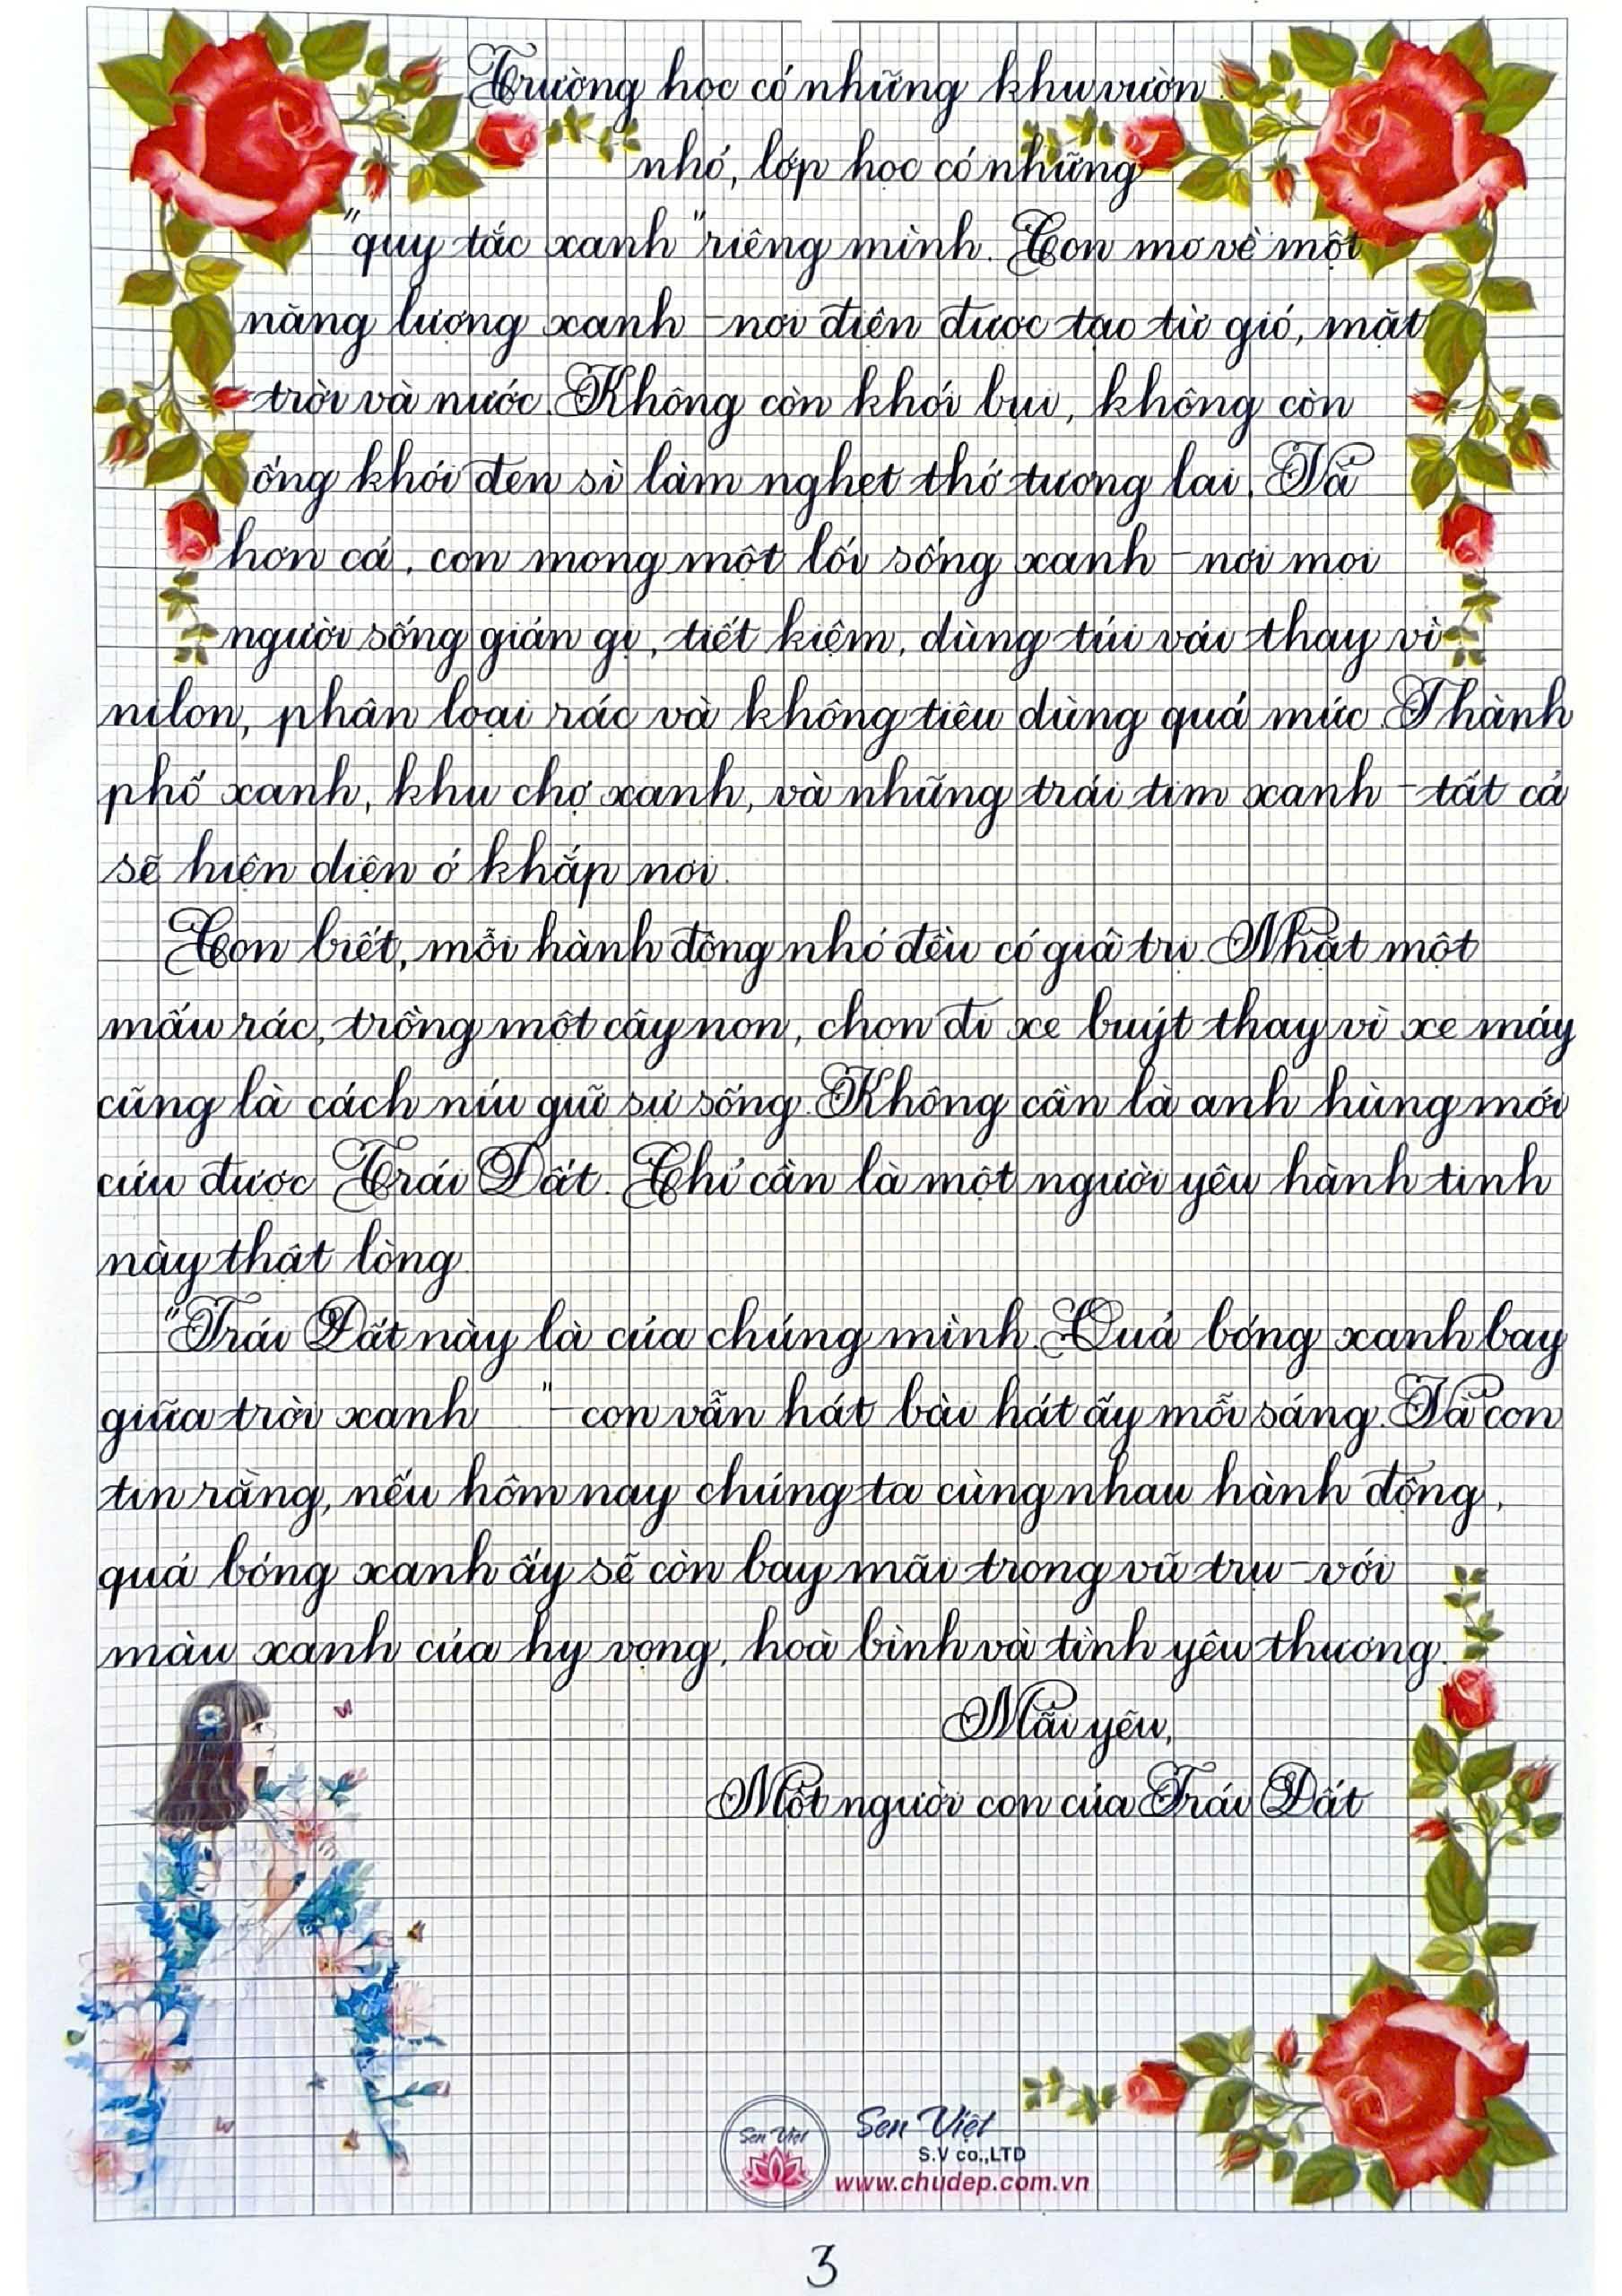 Trường học có những khu vườn
nhỏ, lớp học có những
"quy tắc xanh" riêng mình. Con mơ về một
năng lượng xanh - nơi điện được tạo từ gió, mặt
trời và nước. Không còn khói bụi, không còn
ống khói đen sì làm nghẹt thở tương lai. Và
hơn cả, con mong một lối sống xanh - nơi mọi
người sống giản gị, tiết kiệm, dùng túi vải thay vì
nilon, phân loại rác và không tiêu dùng quá mức. Thành
phố xanh, khu chợ xanh, và những trái tim xanh - tất cả
sẽ hiện diện ở khắp nơi.
Con biết, mỗi hành động nhỏ đều có giá trị. Nhặt một
mẩu rác, trồng một cây non, chọn đi xe buýt thay vì xe máy
cũng là cách níu giữ sự sống. Không cần là anh hùng mới
cứu được Trái Đất. Chỉ cần là một người yêu hành tinh
này thật lòng.
"Trái Đất này là của chúng mình. Quả bóng xanh bay
giữa trời xanh..." - con vẫn hát bài hát ấy mỗi sáng. Và con
tin rằng, nếu hôm nay chúng ta cùng nhau hành động,
quả bóng xanh ấy sẽ còn bay mãi trong vũ trụ - với
màu xanh của hy vọng, hoà bình và tình yêu thương.
Mãi yêu,
Một người con của Trái Đất
Sen Việt
Sen Việt
S.V co.,LTD
www.chudep.com.vn
3